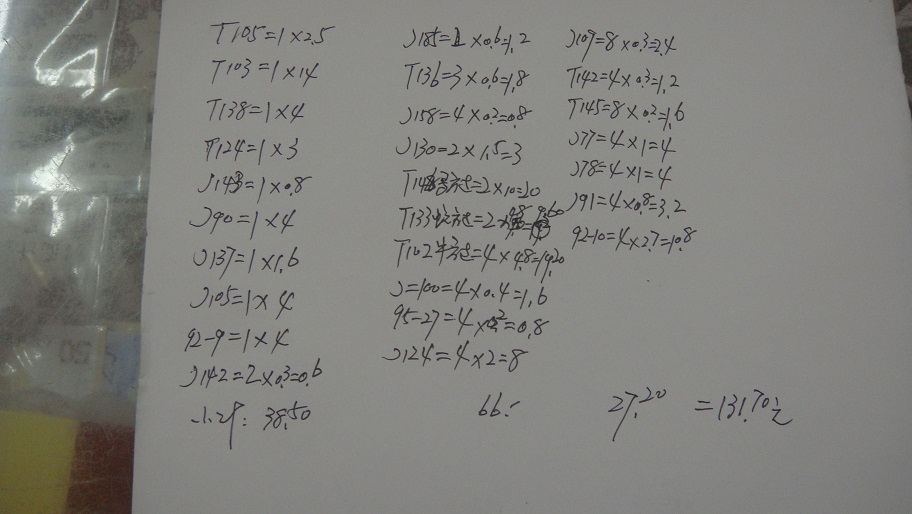 T105=1×2.5
T103=1×14
T138=1×4
T124=1×3
J143=1×0.8
J90=1×4
J137=1×1.6
J105=1×4
92-9=1×4
J142=2×0.3=0.6
小计: 38.50
J185=2×0.6=1.2
T136=3×0.6=1.8
J158=4×0.2=0.8
J130=2×1.5=3
=2×10=20
T133
T102 =4×4.8=19.20
J=100=4×0.4=1.6
95-27=4×0.2=0.8
J124=4×2=8
66.-
J109=8×0.3=2.4
T142=4×0.3=1.2
T145=8×0.2=1.6
J77=4×1=4
J78=4×1=4
J91=4×0.8=3.2
92-10=4×2.7=10.8
27.20 =131.70元